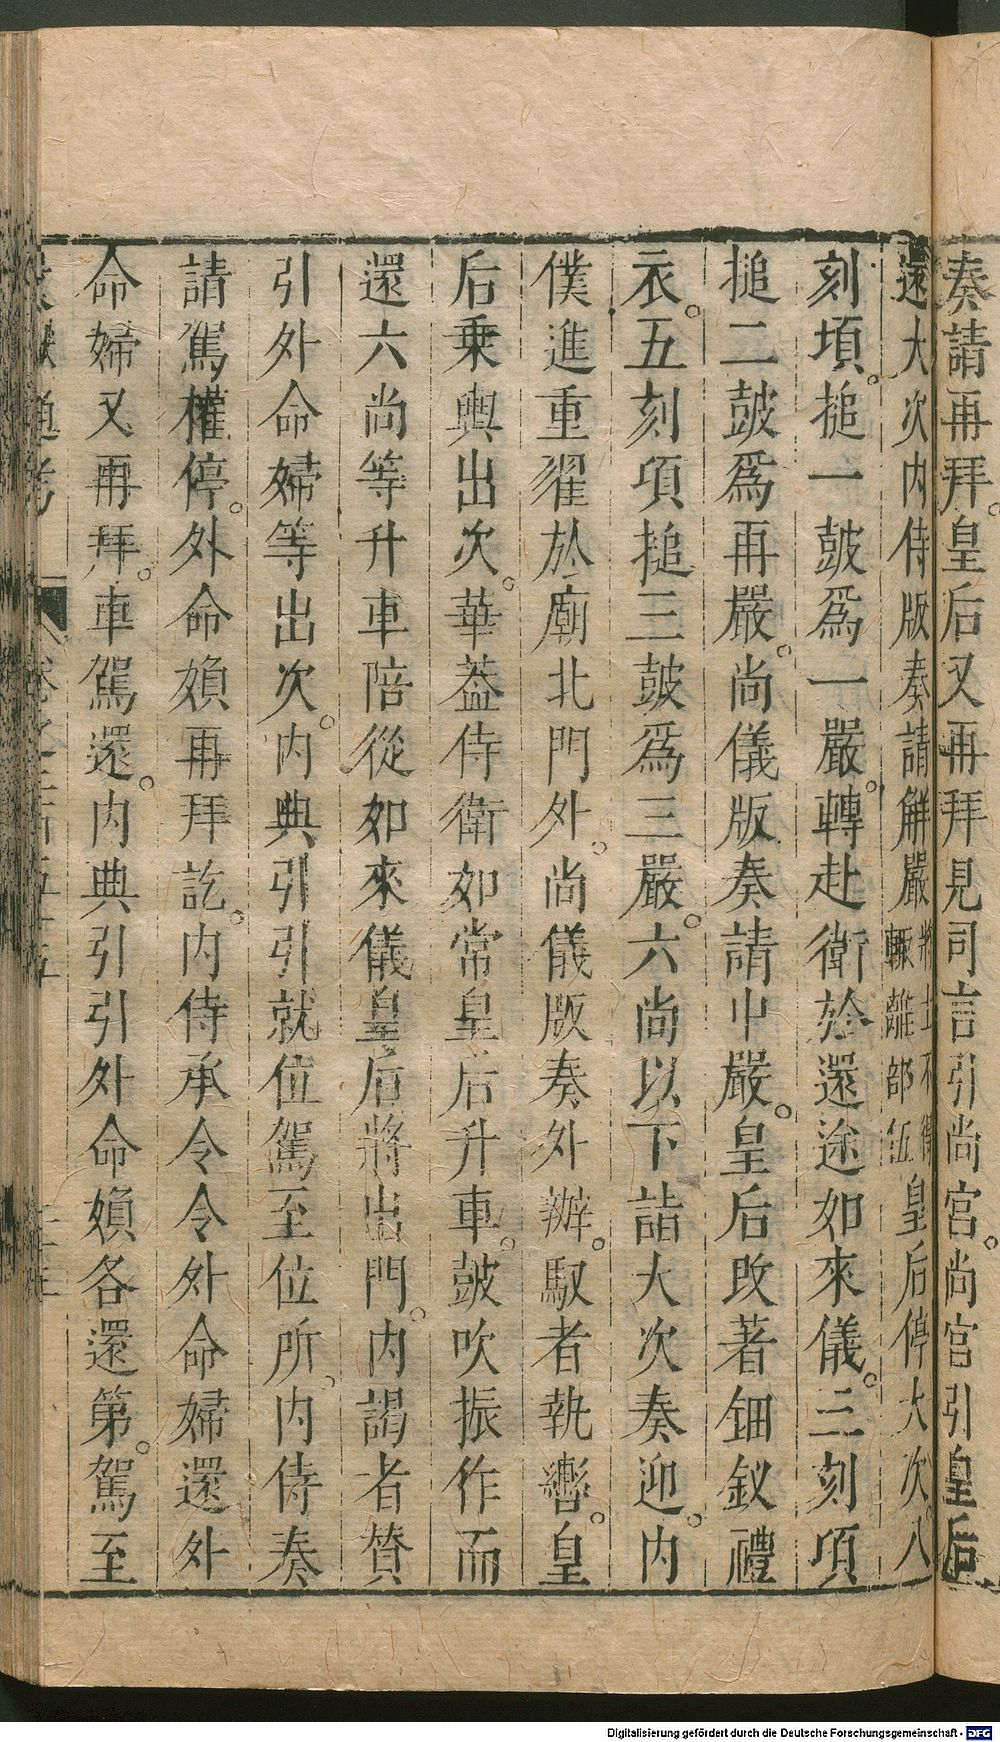 奏請再拜皇后又再拜見司言引尚宮尚宮引皇后
還大次内侍版奏請解嚴將士不得輒離部伍皇后停大次八
刻頃搥一鼓爲一嚴轉赴衛於還途如來儀三刻項
搥二鼓爲再嚴尚儀版奏請中嚴皇后改著鈿釵禮
衣五刻項搥三鼓爲三嚴六尚以下詣大次奏迎内
僕進重翟於廟北門外尚儀版奏外辦馭者執轡皇
后乗輿出次華葢侍衛如常皇后升車鼓吹振作而
還六尚等升車陪從如來儀皇后將出門内謁者賛
引外命婦等出次内典引引就位駕至位所内侍奏
請駕權停外命嬪再拜訖内侍承令令外命婦還外
命婦又再拜車駕還内典引引外命嬪各還第駕至
通考
Digitalisierung gefördert durch die Deutsche Forschungsgemeinschaft - DFG